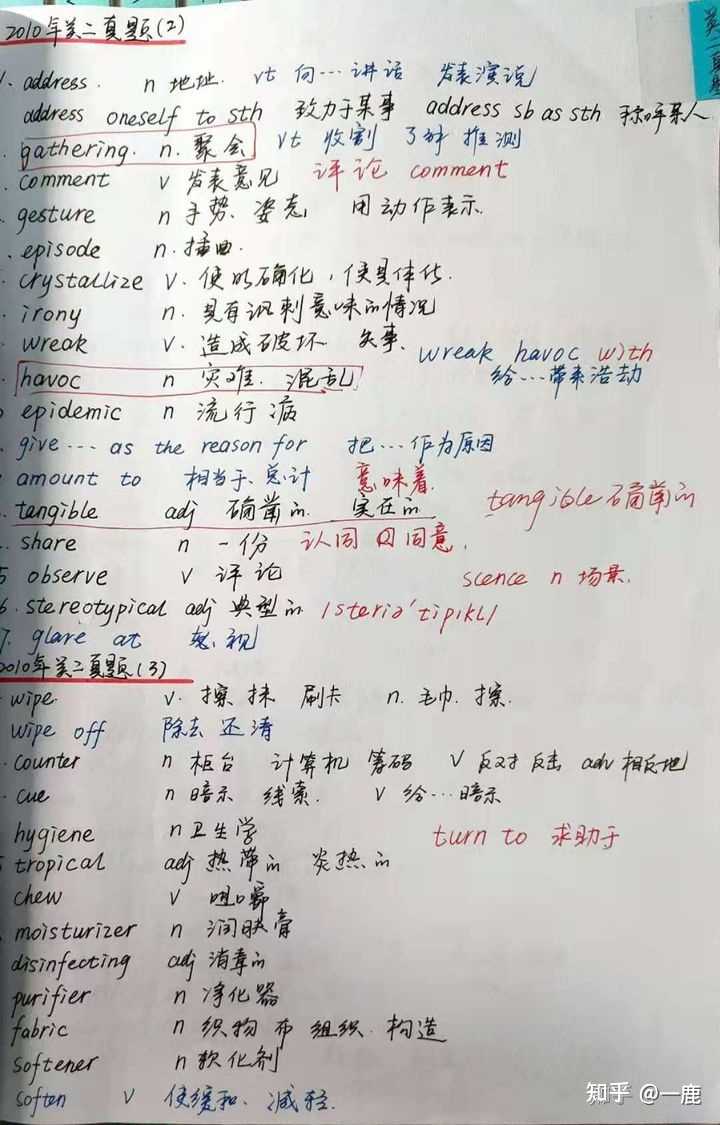 2010年英二真题(2)
英一真题
1. address. n 地址. vt 向…讲话 发表演说
address oneself to sth 致力于某事 address sb as sth 称呼某人
gathering. n. 聚会 vt 收割 了解 推测
comment v 发表意见 评论 comment
gesture n 手势. 姿态 用动作表示.
episode n. 插曲.
crystallize v. 使明确化, 使具体化.
irony n. 具有讽刺意味的情况
wreak v. 造成破坏 失事.
wreak havoc with
havoc n 灾难. 混乱 给…带来浩劫
epidemic n 流行病
give … as the reason for 把…作为原因
amount to 相当于、总计 意味着.
tangible adj 确凿的. 实在的 tangible 确凿的
share n 一份 认同 同意.
5 observe v 评论 scence n 场景.
6. stereotypical adj 典型的 /steriə'tipikl/
7. glare at 怒视
2010年英二真题(3)
wipe v. 擦 抹 刷卡 n. 毛巾. 擦.
wipe off 除去 还清
counter n 柜台 计算机 筹码 v 反对 反击 adv 相反地
cue n 暗示 线索. v 给…暗示
hygiene n 卫生学 turn to 求助于
tropical adj 热带的 炎热的
chew v 咀嚼
moisturizer n 润肤膏
disinfecting adj 消毒的
purifier n 净化器
fabric n 织物 布 组织. 构造
softener n 软化剂
soften v 使缓和、减轻.
知乎 @一鹿